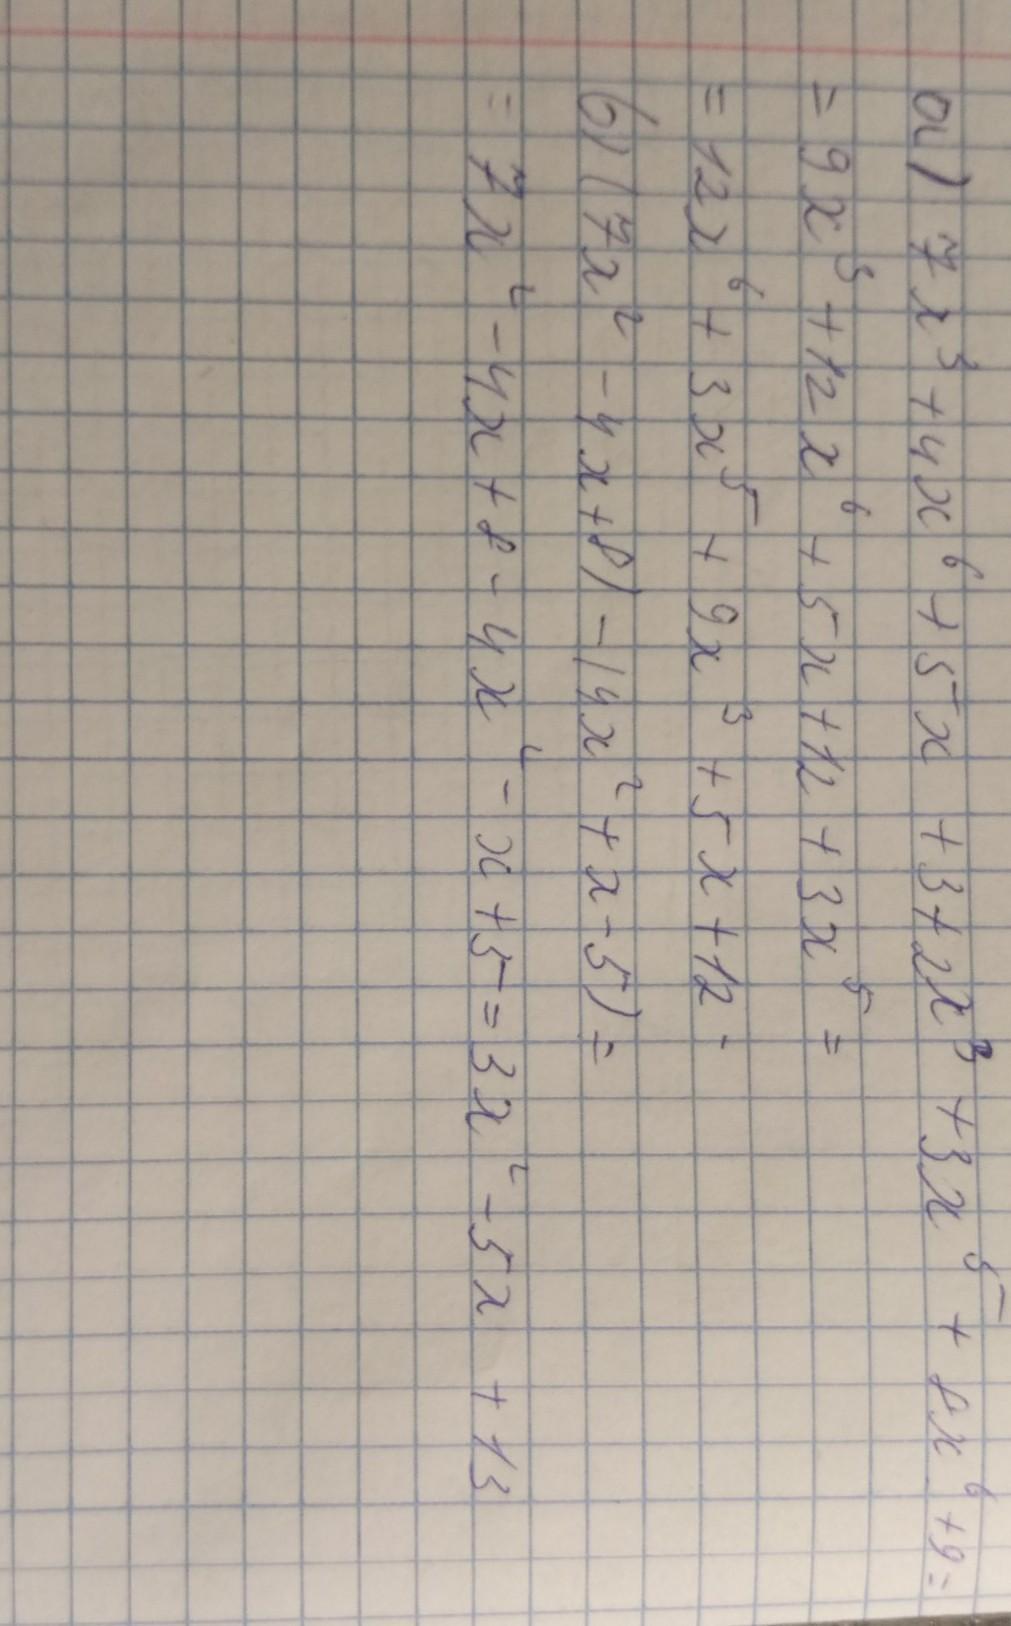 а) 7x³+4x⁶+5x+3+2x³+3x⁵+8x⁶+9=
=9x³+12x⁶+5x+12+3x⁵=
=12x⁶+3x⁵+9x³+5x+12.
б) (7x²-4x+8)-(4x²+x-5)=
=7x²-4x+8-4x²-x+5=3x²-5x+13